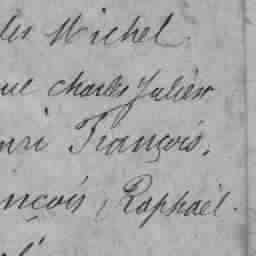 les Michel
que Charles Julien
nri François,
nçois, Raphaël.